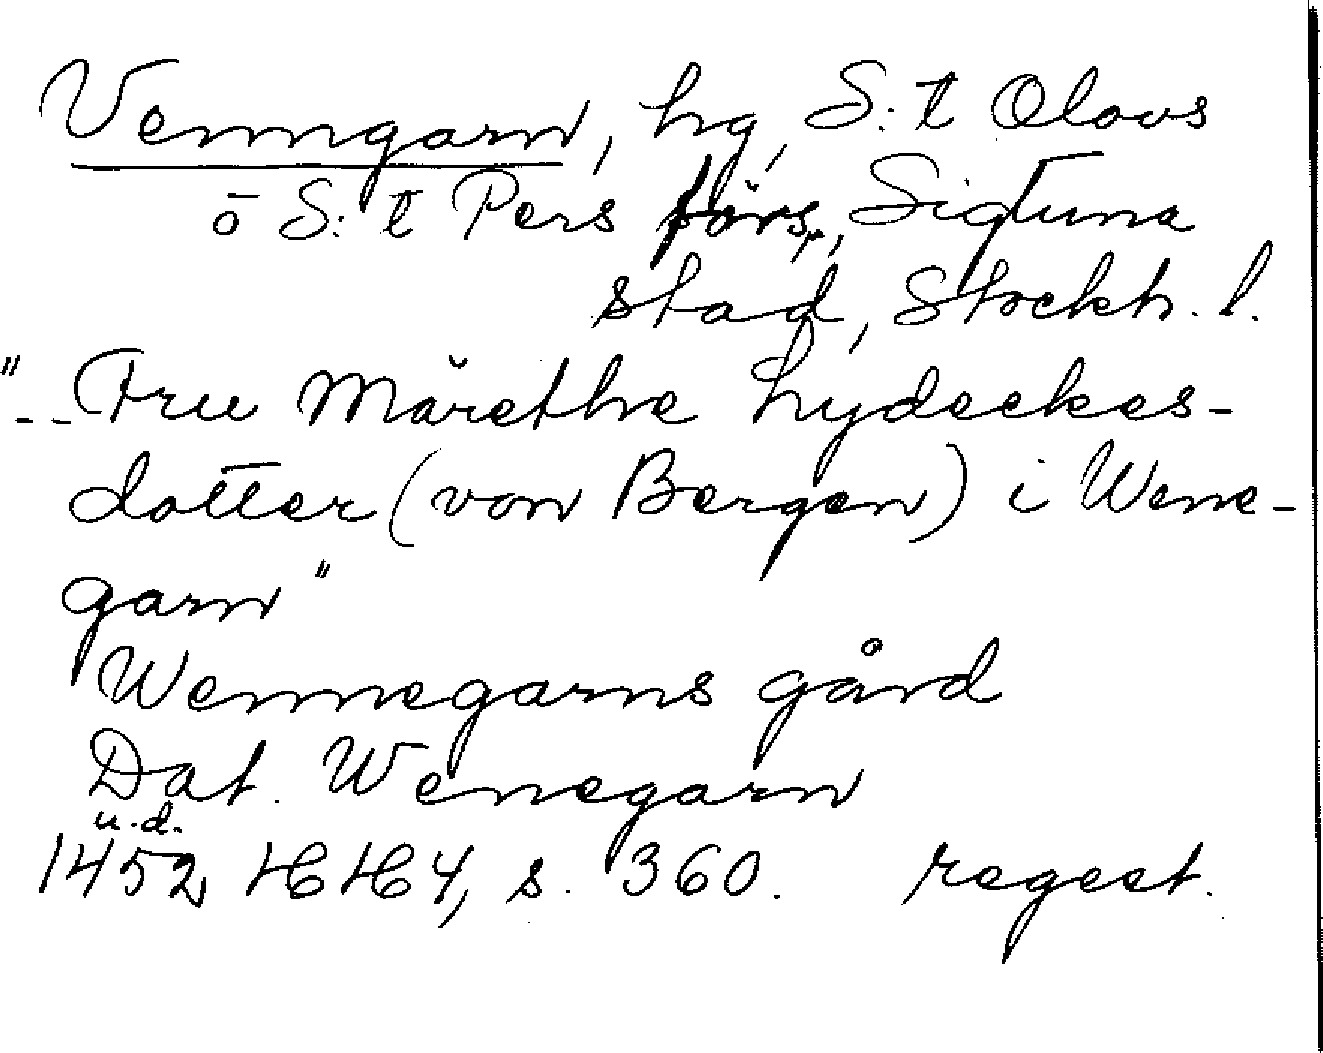 Venngarn, hg, S:t Olovs
o S:t Pers förs., Sigtuna
stad, Stockh. l.
"-- Fru Märethe Lydeckes-
dotter (von Bergen) i Wene-
garn"
Wennegarns gård
Dat. Wenegarn
u.d.
1452 HH 4, s. 360. regest.